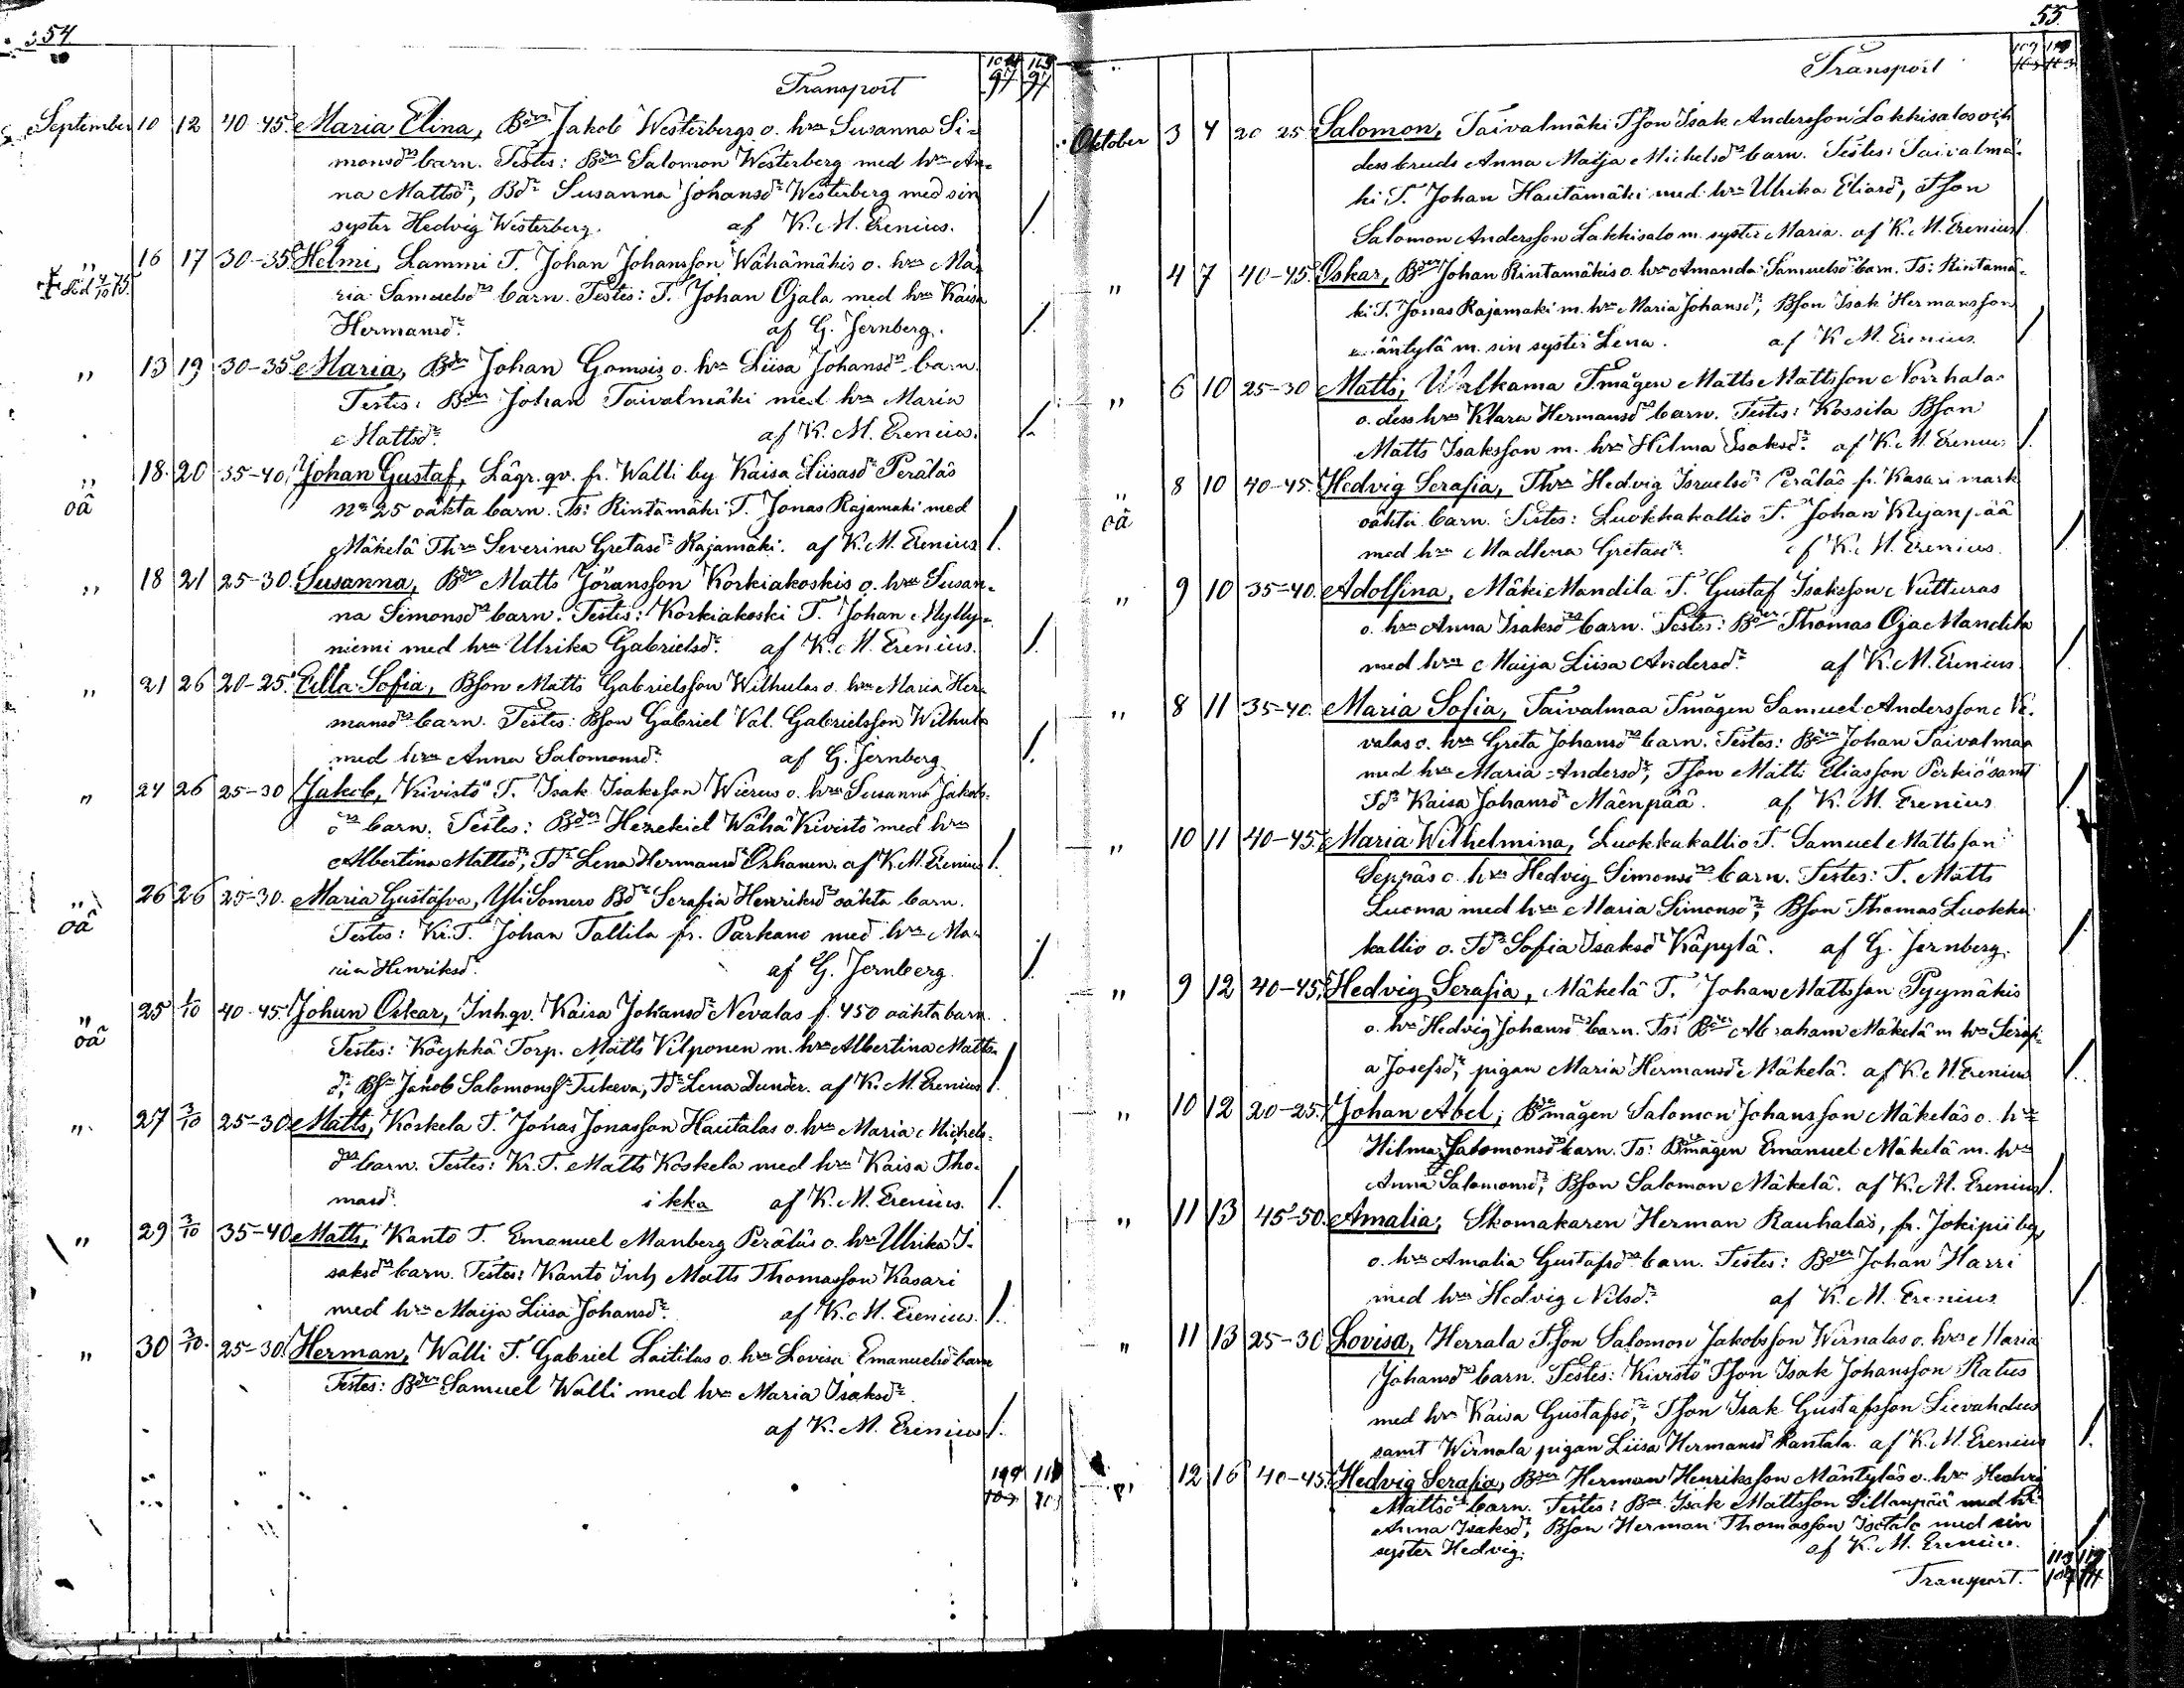 54
Transport
September 10 12 40-45. Maria Elina, Bden Jakob Westerbergs o. hrs Susanna Si-
monsdrs barn. Testes: Bden Salomon Westerberg med hru An-
na Mattsdr, Bdr Susanna Johansdr Westerberg med sin
syster Hedvig Westerberg. af K. M. Erenius. /.
" 16 17 30-35. Helmi, Lammi T. Johan Johansson Wähämäkis o. hrs Ma-
ria Samuelsdrs barn. Testes: T. Johan Ojala med hru Kaisa
Hermansdr. af G. Jernberg. /.
" 13 19 30-35. Maria, Bden Johan Gomsis o. hrs Liisa Johansdrs barn
Testes: Bden Johan Taivalmäki med hru Maria
Mattsdr. af K. M. Erenius. /.
" 18 20 35-40. Johan Gustaf, Lägr. qv. fr. Walli by Kaisa Liisasdr Peräläs
oä
No 25 oäkta barn. Ts: Rintamäki T. Jonas Rajamäki med
Mäkelä Thru Severina Gretasdr Rajamäki. af K. M. Erenius /.
" 18 21 25-30. Susanna, Bden Matts Jöransson Korkiakoskis o. hrs Susan-
na Simonsdrs barn. Testes: Korkiakoski T. Johan Mylly-
niemi med hru Ulrika Gabrielsdr. af K. M. Erenius. /.
" 21 26 20-25. Ella Sofia, Bson Matts Gabrielsson Wilhulas o. hrs Maria Her-
mansdrs barn. Testes: Bson Gabriel Val. Gabrielsson Wilhula
med hru Anna Salomonsdr. af G. Jernberg /.
" 24 26 25-30 Jakob, Kivistö T. Isak Isaksson Wierus o. hrs Susanna Jakobs-
drs barn. Testes: Bden Hezekiel Wähä Kivistö med hru
Albertina Mattsdr, Tdr Lena Hermansdr Orhanen. af K. M. Erenius /.
" 26 26 25-30. Maria Gustafva, Yli Somero Bdr Serafia Henriksdrs oäkta barn.
oä
Testes: Kr. T. Johan Tallila fr. Parkano med hru Ma-
ria Henriksdr. af G. Jernberg. /.
" 25 1/10 40-45. Johan Oskar, Inh.qv. Kaisa Johansdr Nevalas f. 450 oäkta barn.
oä
Testes: Köykkä Torp. Matts Vilponen m. hru Albertina Matts-
dr, Bsn Jakob Salomonss. Tukeva, Tdr Lena Dunder. af K. M. Erenius /.
" 27 3/10 25-30. Matts, Koskela T. Jonas Jonasson Hautalas o. hrs Maria Michels-
drs barn. Testes: Kr. T. Matts Koskela med hru Kaisa Tho-
masdr. ikka af K. M. Erenius. /.
" 29 3/10 35-40. Matts, Kanto T. Emanuel Manberg Peräläs o. hrs Ulrika I-
saksdrs barn. Testes: Kanto Inh Matts Thomasson Kasari
med hru Maija Liisa Johansdr. af K. M. Erenius. /.
" 30 3/10. 25-30. Herman, Walli T. Gabriel Laitilas o. hrs Lovisa Emanuelsdrs barn
Testes: Bden Samuel Walli med hru Maria Isaksdr.
af K. M. Erenius /.
55.
Transport
Oktober 3 4 20-25 Salomon, Taivalmäki Tson Isak Andersson Lakkisalos och
dess bruds Anna Maija Michelsdrs barn. Testes: Taivalmä-
ki T. Johan Hautamäki med hru Ulrika Eliasdr, Tson
Salomon Andersson Lakkisalo m. syster Maria. af K. M. Erenius /
" 4 7 40-45. Oskar, Bden Johan Rintamäkis o. hrs Amanda Samuelsdrs barn. Ts: Rintamä-
ki T. Jonas Rajamäki m. hru Maria Johansdr, Bson Isak Hermansson
Mäntylä m. sin syster Lena. af K. M. Erenius. /
" 6 10 25-30 Matts, Walkama Tmågen Matts Mattsson Norrhalas
o. dess hrs Klara Hermansdrs barn. Testes: Kossila Bson
Matts Isaksson m. hru Hilma Isaksdr. af K. M. Erenius /.
" 8 10 40-45. Hedvig Serafia, Thrs Hedvig Israelsdr Peräläs fr. Kasari mark
oä
oäkta barn. Testes: Luokkakallio T. Johan Kujanpää
med hru Madlena Gretasdr. af K. M. Erenius. /
" 9 10 35-40. Adolfina, Mäki Mandila T. Gustaf Isaksson Nutturas
o. hrs Anna Isaksdrs barn. Testes: Bden Thomas Oja Mandila
med hru Maija Liisa Andersdr. af K. M. Erenius /
" 8 11 35-40. Maria Sofia, Taivalmaa Tmågen Samuel Andersson
valas o. hrs Greta Johansdrs barn. Testes: Bden Johan Taivalmaa
med hru Maria Andersdr, Tson Matti Eliasson Perkiö samt
Tdr Kaisa Johansdr Mäenpää. af K. M. Erenius /.
" 10 11 40-45. Maria Wilhelmina, Luokkakallio T. Samuel Mattsson
Seppäs o. hrs Hedvig Simonsdrs barn. Testes: T. Matts
Luoma med hru Maria Simonsdr, Bson Thomas Luokka
kallio o. Tdr Sofia Isaksdr Käpylä. af G. Jernberg. /
" 9 12 40-45. Hedvig Serafia, Mäkelä T. Johan Mattsson Pyymäkis
o. hrs Hedvig Johansdrs barn. Ts: Bden Abraham Mäkelä m hru Serafi-
a Josefsdr, pigan Maria Hermansdr Mäkelä. af K. M. Erenius /.
" 10 12 20-25. Johan Abel, Bmågen Salomon Johansson Mäkeläs o. hrs
Hilma Salomonsdrs barn. Ts: Bmågen Emanuel Mäkelä m. hru
Anna Salomonsdr, Bson Salomon Mäkelä. af K. M. Erenius /.
" 11 13 45-50. Amalia, Skomakaren Herman Rauhalas, fr. Jokipii by,
o. hrs Amalia Gustafsdrs barn. Testes: Bden Johan Harri
med hru Hedvig Nilsdr. af K. M. Erenius /.
" 11 13 25-30 Lovisa, Herrala Tson Salomon Jakobsson Wirnalas o. hrs Maria
Johansdrs barn. Testes: Kivistö Tson Isak Johansson Ratus
med hru Kaisa Gustafsdr, Tson Isak Gustafsson Lievahdus
samt Wirnala pigan Liisa Hermansdr Rantala. af K. M. Erenius /.
" 12 16 40-45. Hedvig Serafia, Bden Herman Henriksson Mäntyläs o. hrs Hedvig
Mattsdrs barn. Testes: Bdn Isak Mattsson Sillanpää med hru
Anna Isaksdr, Bson Herman Thomasson Isotalo med sin
syster Hedvig. af K. M. Erenius. /
Transport.